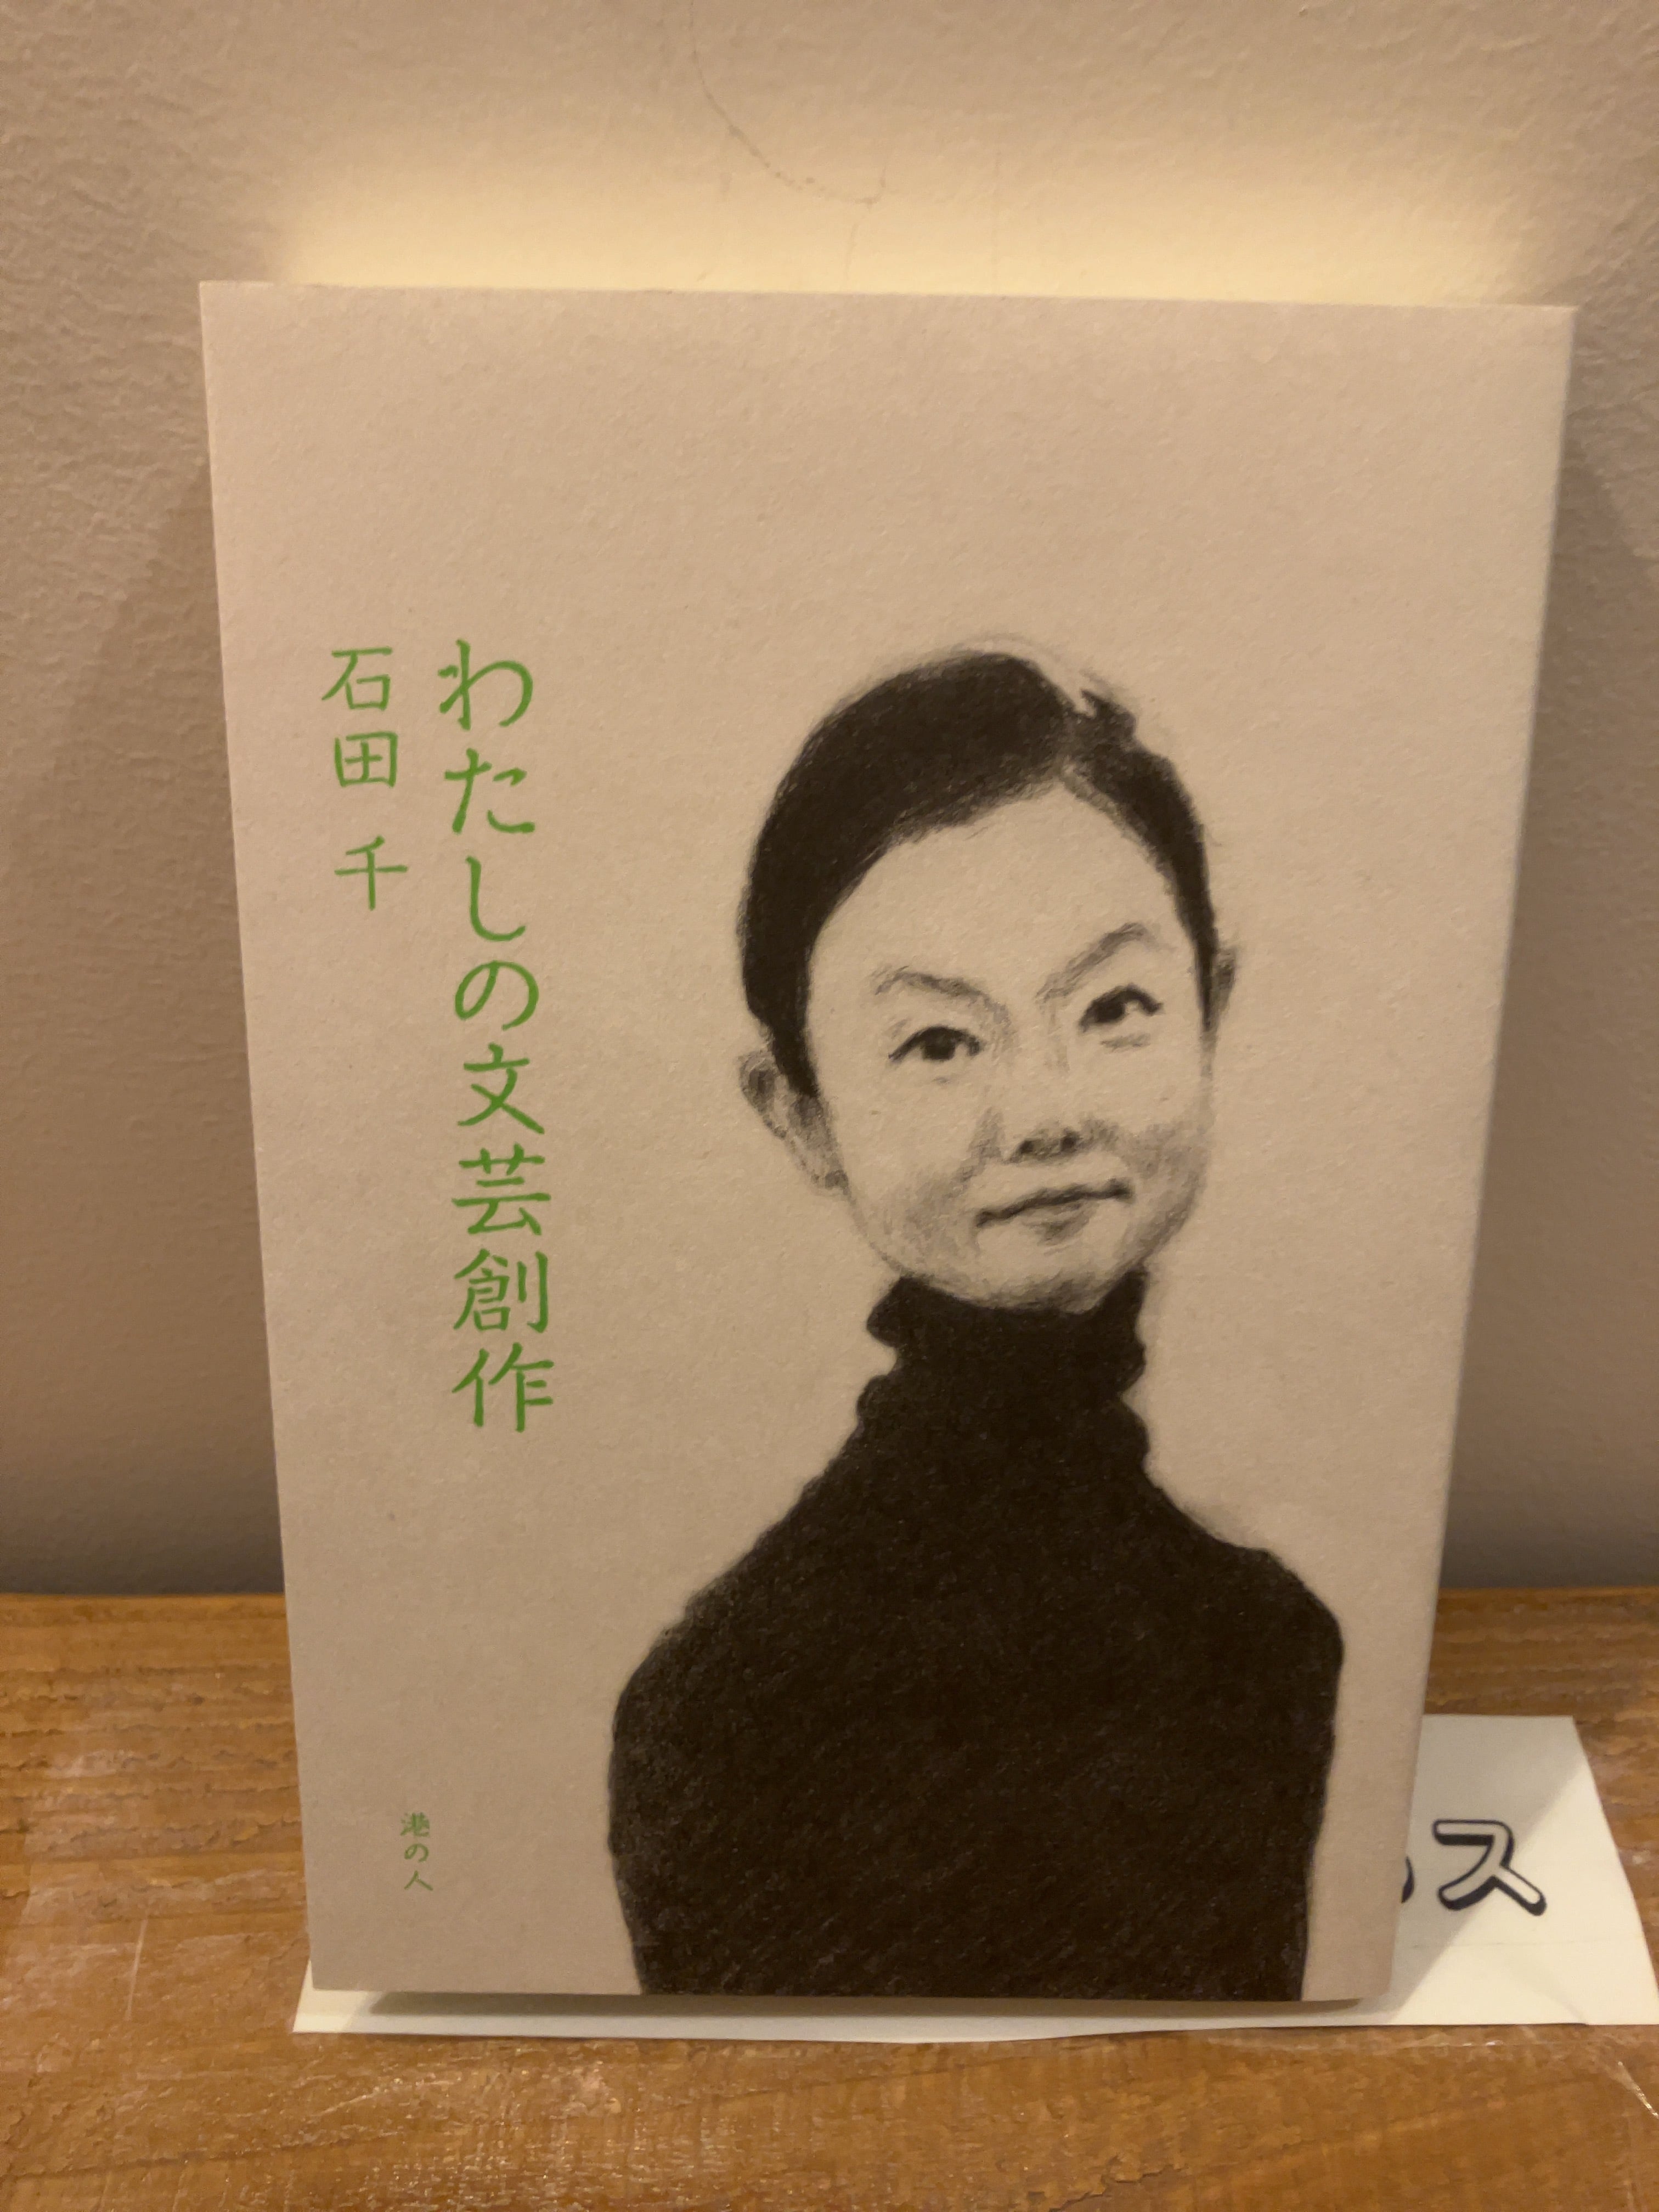 わたしの文芸創作
石田千
港の人
ス